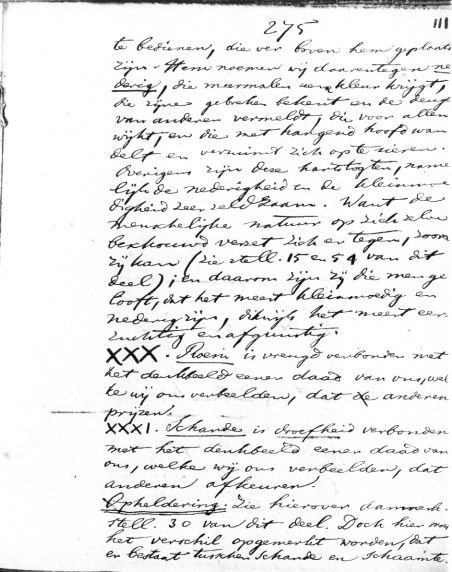 275
111
te bedienen, die ver boven hem geplaatst
zijn. Hem noemen wij daarentegen ne
derig, die meermalen van kleur krijgt,
die zijne gebreken bekent en de deugd
van anderen vermeldt, die voor allen
wijkt, en die met hangend hoofd wan
delt en verzuimt zich op te sieren.
Overigens zijn deze hartstogten, name
lijk de nederigheid en de kleinmoe
digheid zeer zeldzaam. Want de
menschelijke natuur op zich zelve
beschouwd verzet zich er tegen, zoover
zij kan (zie stell. 15 en 54 van dit
deel); en daarom zijn zij die men ge
looft, dat het meest kleinmoedig en
nederig zijn, dikwijls het meest eer
zuchtig en afgunstig.
XXX. Roem is vreugd verbonden met
het denkbeeld eener daad van ons, wel
ke wij ons verbeelden, dat de anderen
prijzen.
XXXI. Schande is droefheid verbonden
met het denkbeeld eener daad van
ons, welke wij ons verbeelden, dat
anderen afkeuren.
Opheldering: Zie hierover aanmerk.
stell. 30 van dit deel. Doch hier moet
het verschil opgemerkt worden, dat
er bestaat tusschen Schande en Schaamte.